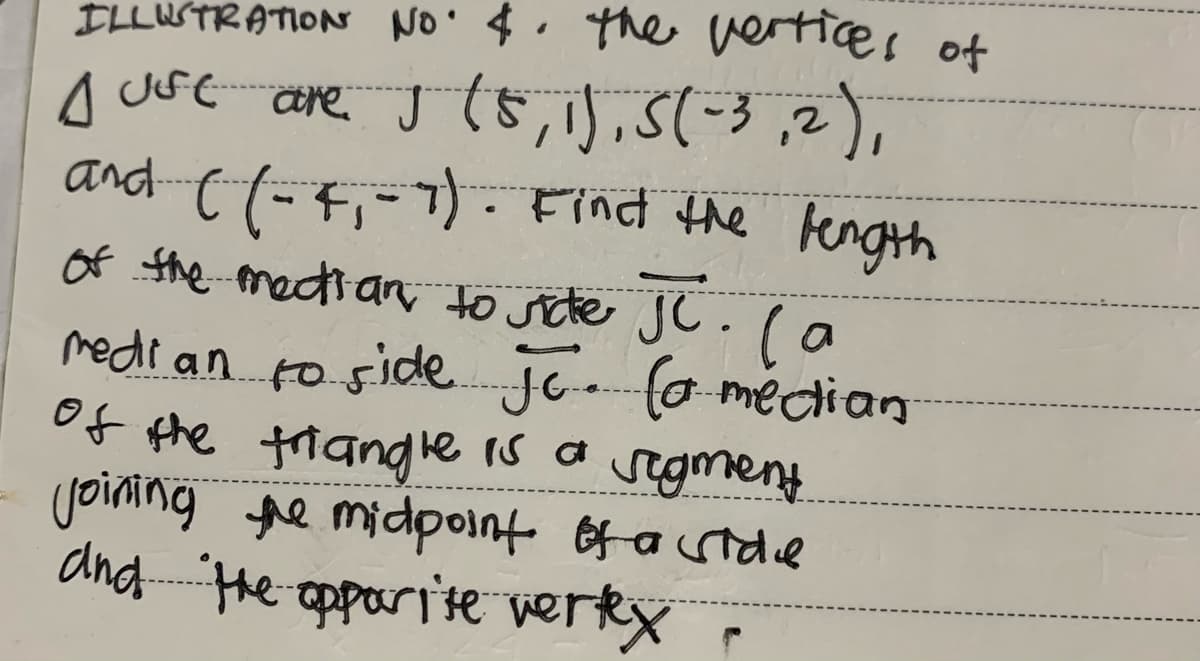 ILLUSTRATION NO. 4. the vertices of
Δ JSC are J (5,1), S(-3,2),
and C (-4,-7). Find the length
of the median to side JC. (a
median to side JC. (a median
of the triangle is a segment
joining the midpoint of a side
and the opposite vertex.